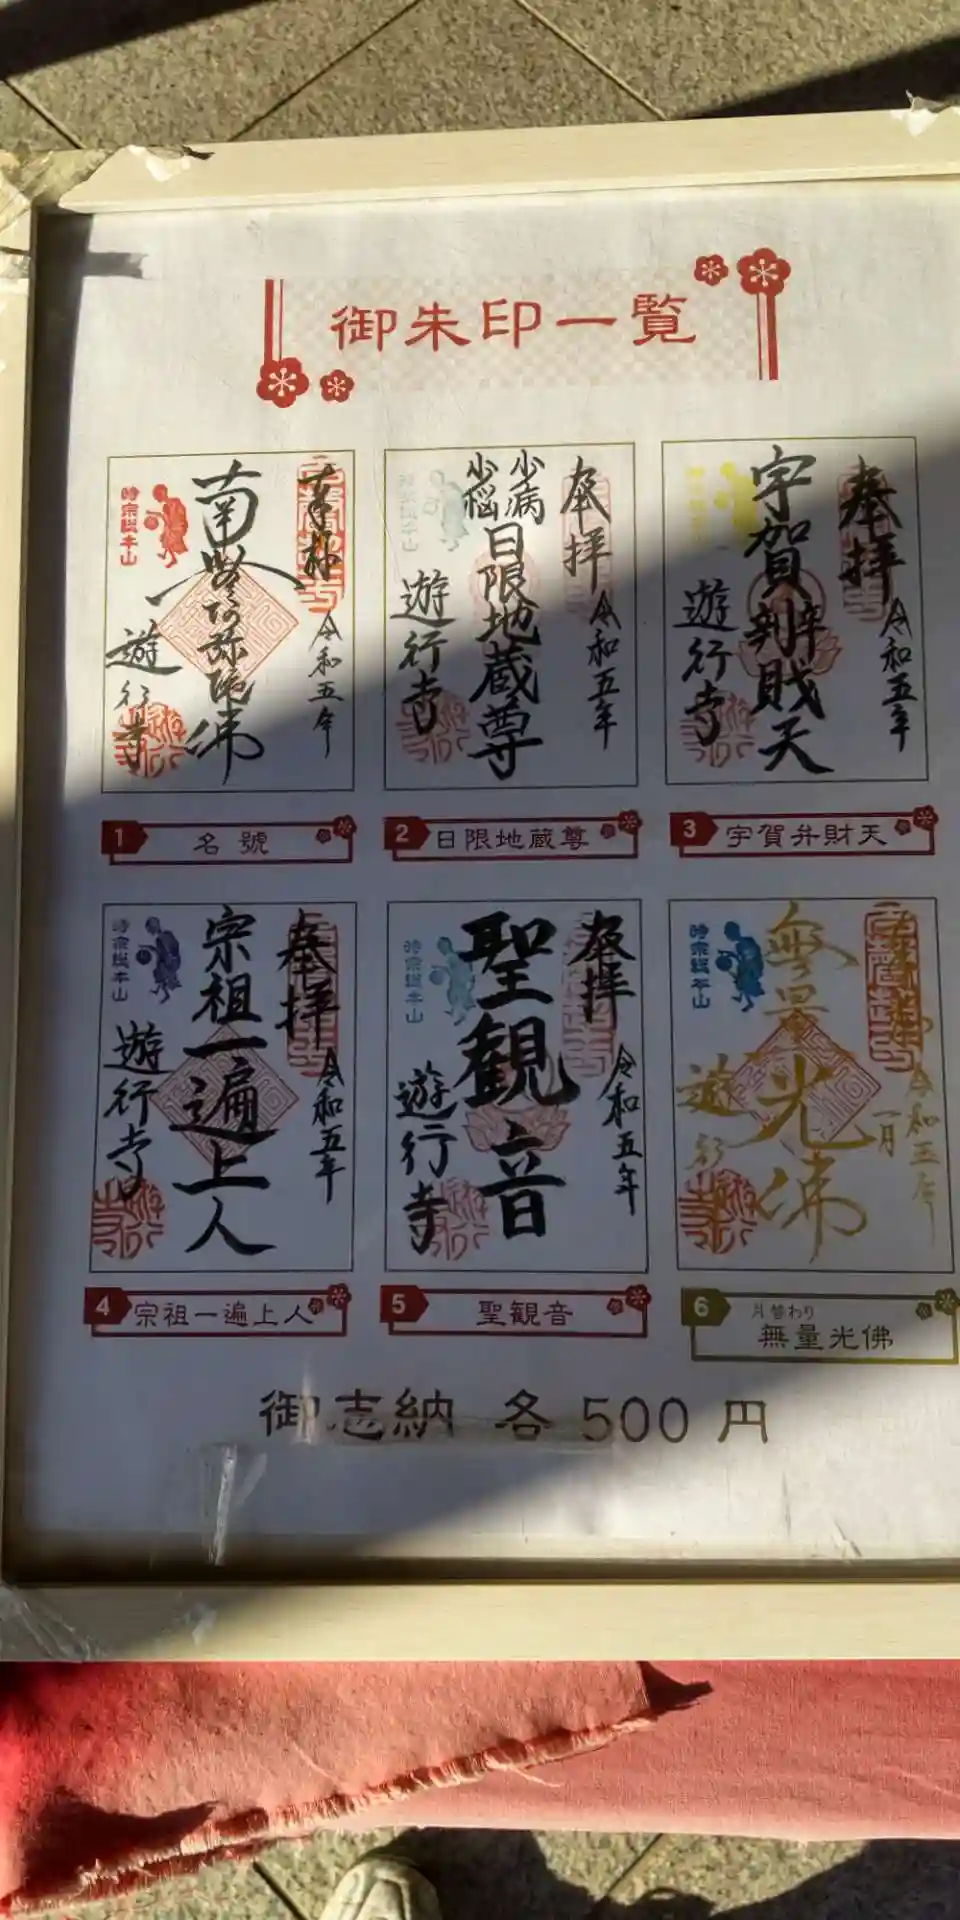 御朱印一覧
奉拝
令和五年
南無阿弥陀佛
時宗総本山
遊行寺
1 名號
奉拝
令和五年
少病
少悩
日限地蔵尊
時宗総本山
遊行寺
2 日限地蔵尊
奉拝
令和五年
宇賀辨財天
遊行寺
3 宇賀弁財天
奉拝
令和五年
宗祖一遍上人
時宗総本山
遊行寺
4 宗祖一遍上人
奉拝
令和五年
聖観音
時宗総本山
遊行寺
5 聖観音
令和五年
一月
無量光佛
時宗総本山
遊行寺
6 月替わり
無量光佛
御志納 各 500 円